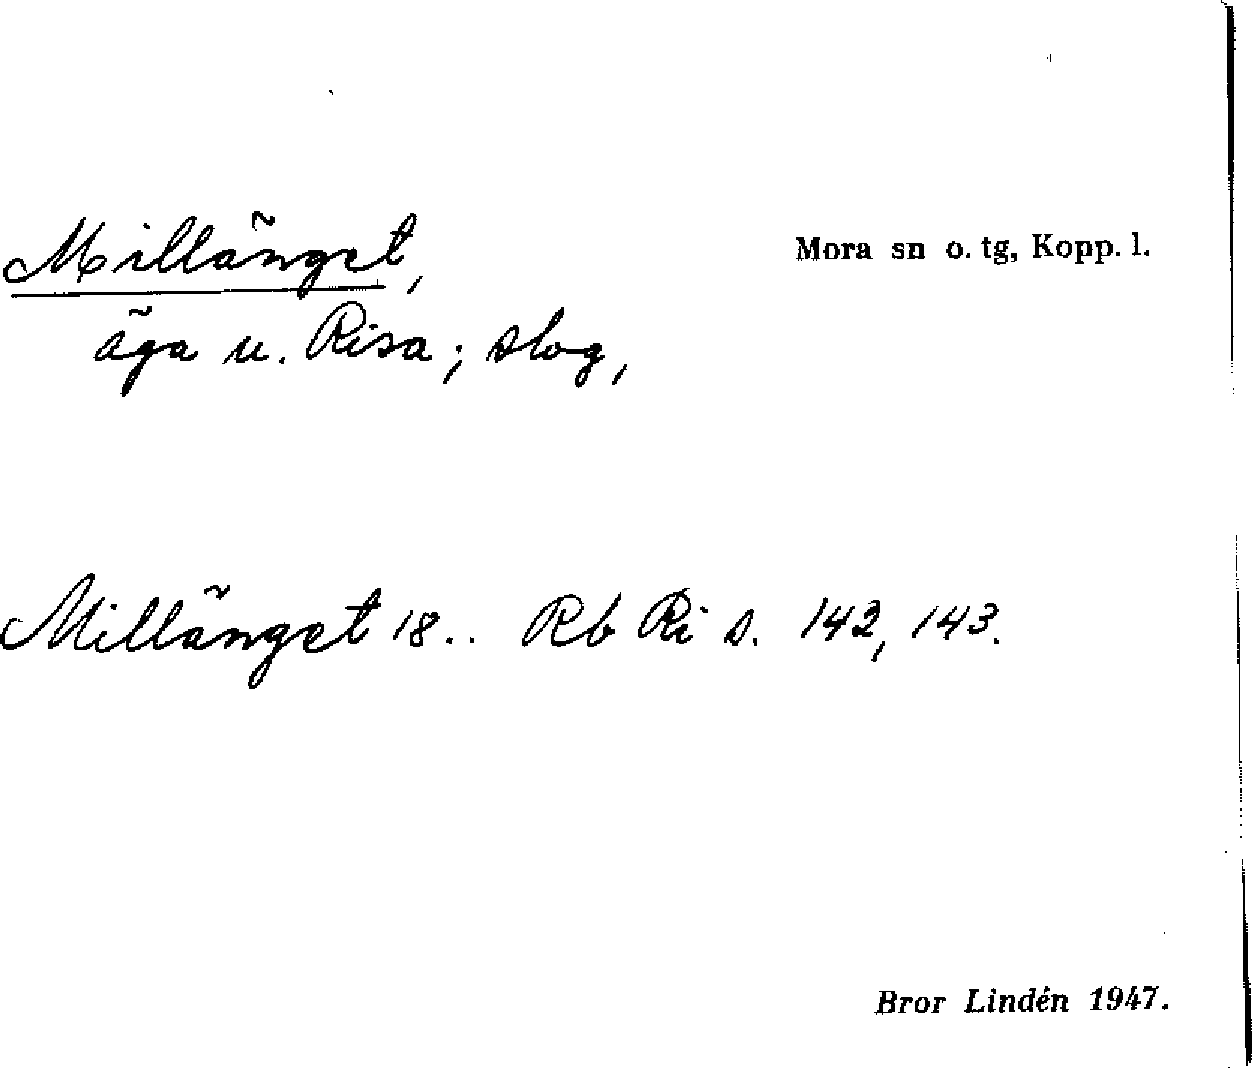 Millänget,
Mora sn o. tg, Kopp. l.
äga u. Risa; slog,
Millänget 18.. Rb Ri s. 142, 143.
Bror Lindén 1947.